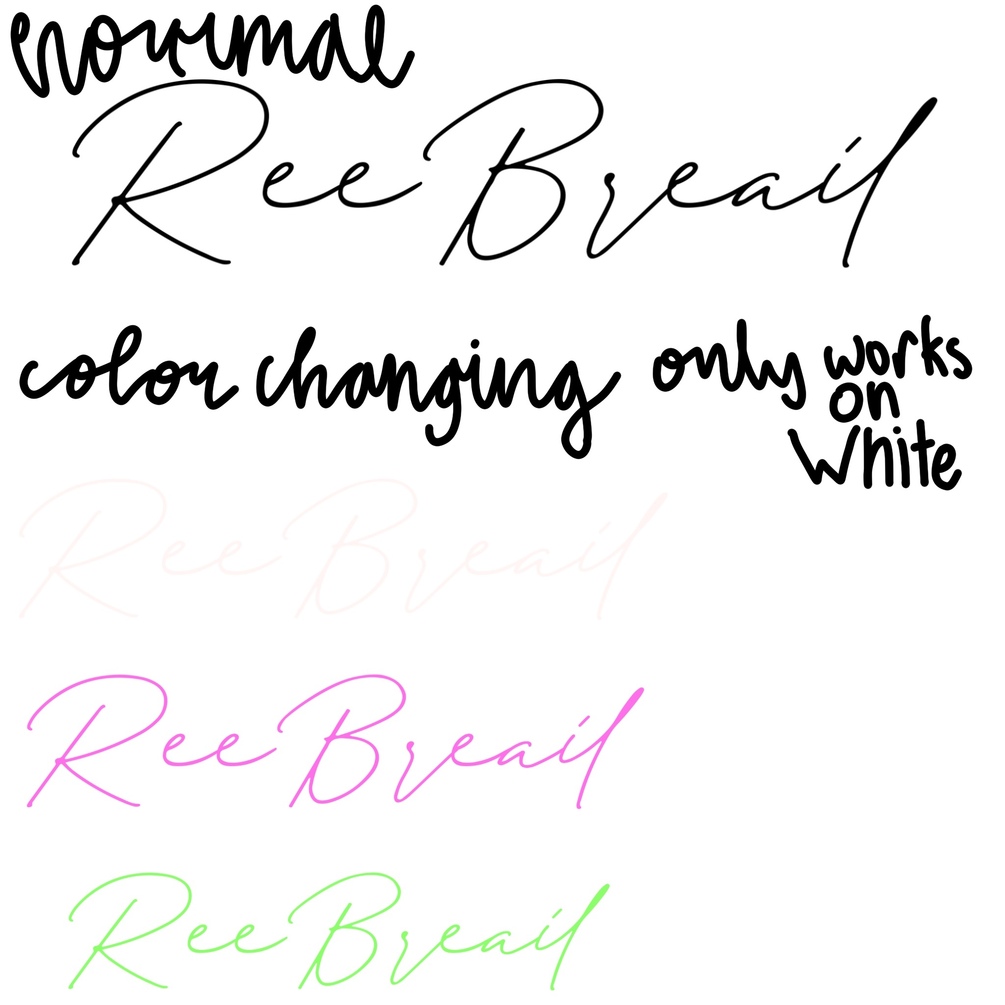 normal
Ree Breail
color changing only works
on
white
Ree Breail
Ree Breail
Ree Breail